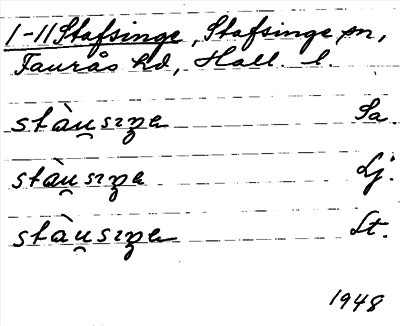 1-11 Stafsinge, Stafsinge sn,
Faurås hd, Hall. l.
stàu̯sıŋa Sa.
stàu̯sıŋa Lj.
stàu̯sıŋa St.
1948